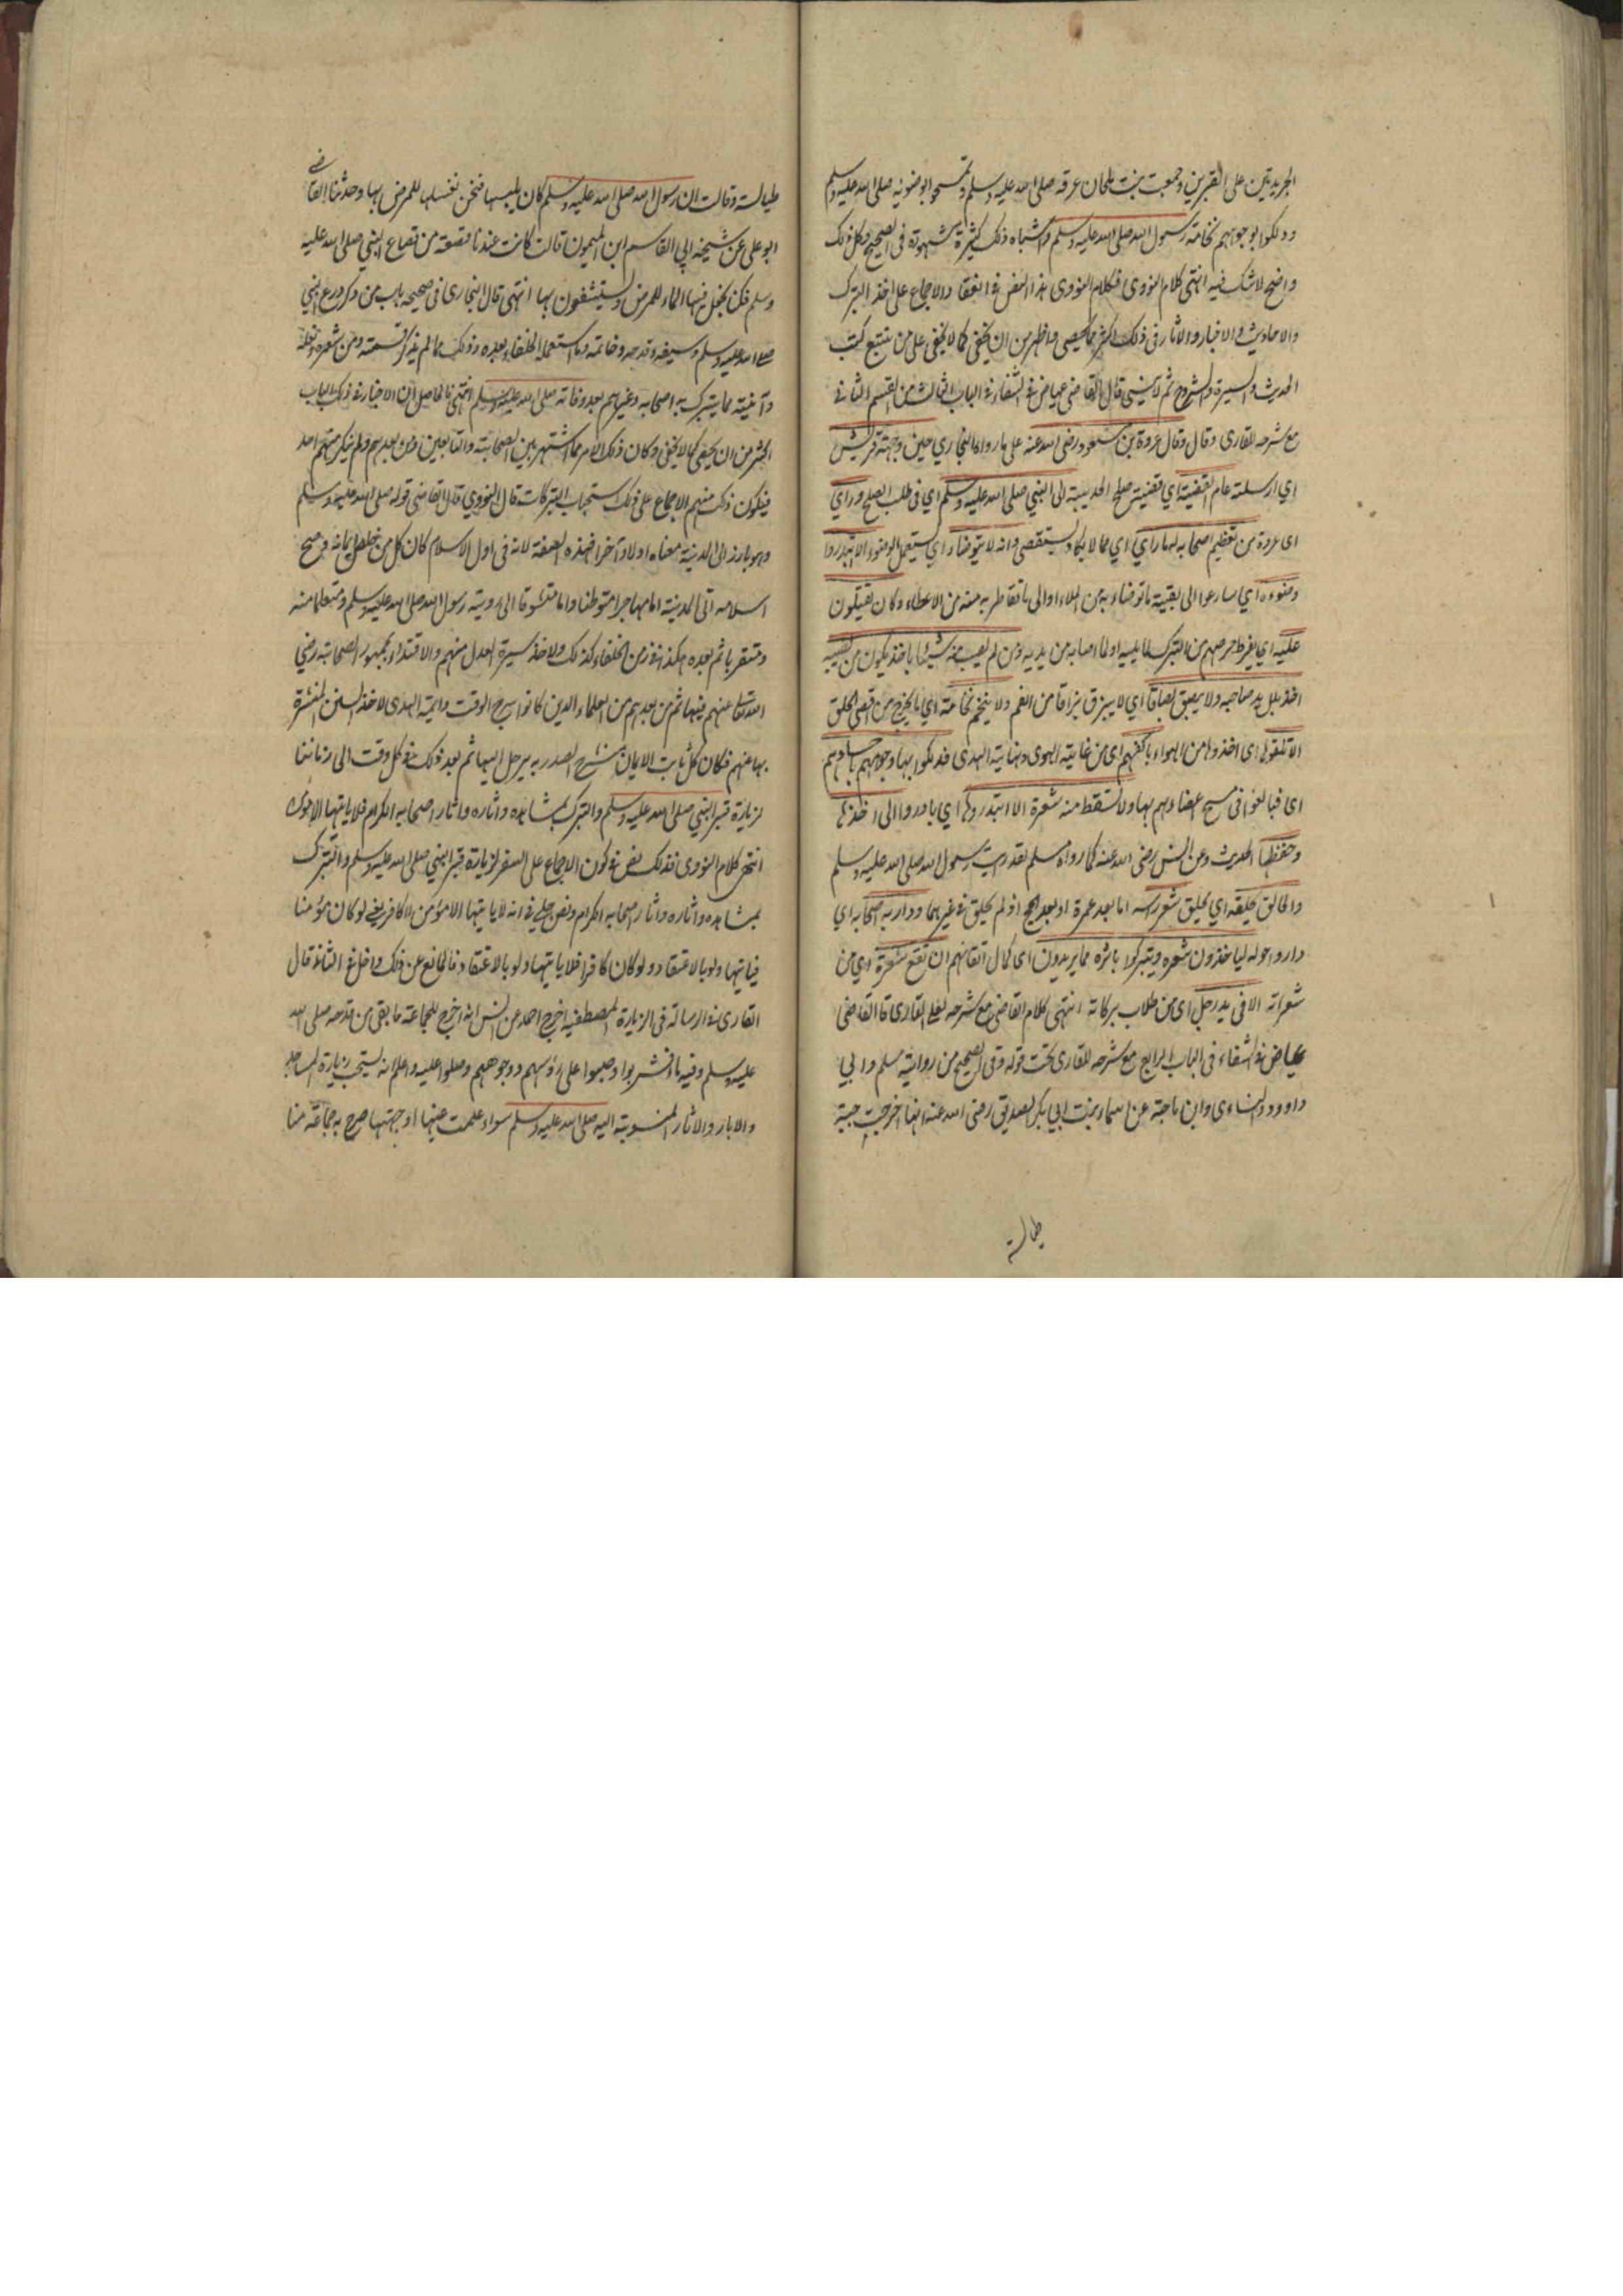 الجريدتين على القبرين وجمعت بنت ملحان عرقه صلى الله عليه وسلم وتمسحوا بوضوئه صلى الله عليه وسلم
ودلكوا بوجوههم نخامته رسول الله صلى الله عليه وسلم واشباه ذلك كثيرة مشهورة فى الصحيح وكل ذلك
واضح لا شك فيه انتهى كلام النووى فكلام النووى هذا النص فى انعقاد الاجماع على اخذ التبرك
والاحاديث والاخبار والاثار فى ذلك اكثر مما يحصى واظهر من ان يخفى كما لا يخفى على من تتبع كتب
الحديث والسيرة والشروح ثم لا ينسى قال القاضى عياض فى الشفاء فى الباب الثالث من القسم الثانى
مع شرحه للقارى وقال وقال عروة بن مسعود رضى الله عنه على ما رواه البخاري حين وجهته قريش
اي ارسلته عام القضية اي قضية صلح الحديبية الى النبي صلى الله عليه وسلم اي فى طلب الصلح وراي
اى عروة من تعظيم اصحابه له ما راي اي مما لا يكاد يستقصى وانه لا يتوضأ اي يستعمل الوضوء الا ابتدروا
وضوءه اي سارعوا الى بقية ما توضاء به من الماء او الى ما تقاطر به منه من الاعضاء وكان يقتتلون
عليه اي بفرط حرصهم من التبرك لما يليه او لما اصابه من يديه ومن لم يصب منه شيئا ياخذ يكون من نصيبه
اخذ بلل يد صاحبه ولا يبصق بصاقا اي لا يبزق بزاقا من الفم ولا يتنخم نخامة اي ما يخرج من اقصى الحلق
الا تلقوها اى اخذوها من الهواء باكفهم اى من غاية الهوى ونهاية الهدى فدلكوا بها وجوههم واجسادهم
اى فبالغوا فى مسح اعضاءهم بها ولا تسقط منه شعرة الا ابتدروها اي بادروا الى اخذها
وحفظها الحديث وعن انس رضى الله عنه كما رواه مسلم لقد رايت رسول الله صلى الله عليه وسلم
والحالق يحلقه اي يحلق شعر راسه اما بعد عمرة او بعد حج اذ لم يحلق فى غيرهما ودار به اصحابه اي
داروا حوله لياخذون شعره ويتبركوا باثره فما يريدون اى كمال اتقانهم ان تقع شعرة اي من
شعراته الا فى يد رجل اى من طلاب بركاته انتهى كلام القاضى مع شرحه لعلى القارى قال القاضى
عياض فى الشفاء فى الباب الرابع مع شرحه للقارى تحت قوله وفى الصحيح من رواية مسلم وابي
داوود والنساءى وابن ماجة عن اسماء بنت ابي بكر الصديق رضى الله عنه انها اخرجت جبة
طيالسة
طيالسة وقالت ان رسول الله صلى الله عليه وسلم كان يلبسها فنحن نغسلها للمرضى بها وحدثنا القاضى
ابو على عن شيخه ابي القاسم ابن الميمون قالت كانت عندنا قصعة من قصاع النبي صلى الله عليه
وسلم فكنا نجعل فيها الماء للمرضى ويستشفون بها انتهى قال البخارى فى صحيحه باب من ذكر ودرع النبي
صلى الله عليه وسلم وسيفه وقدحه وخاتمه وما استعمل الخلفاء بعده وذلك مما لم يذكر قسمته ومن شعره ونعله
وآنيته مما يتبرك به اصحابه وغيرهم بعد وفاته صلى الله عليه وسلم انتهى فالحاصل ان الاخبار فى ذلك الباب
اكثر من ان يخفى كما لا يخفى وكان ذلك الامر مما اشتهر بين الصحابة والتابعين ومن بعدهم ولم ينكر منهم احد
فيكون ذلك منهم الاجماع على ذلك استحباب التبركات قال النووي قال القاضى قوله صلى الله عليه وسلم
وهو يارز الى المدينة معناه اولا وآخرا بهذه الصفة لانه فى اول الاسلام كان كل من خلص ايمانه وصح
اسلامه اتى المدينة اما مهاجرا متوطنا واما متشوقا الى رؤية رسول الله صلى الله عليه وسلم ومتعلما منه
ومتقربا ثم بعده هكذا فى زمن الخلفاء كذلك ولاخذ سيرة العدل منهم والاقتداء بجمهور الصحابة رضي
الله تعالى عنهم فيها ثم من بعدهم من العلماء الذين كانوا سرج الوقت وائمة الهدى لاخذ السنن المنتشرة
بها عنهم فكان كل ثابت الايمان منشرح الصدر به يرحل اليها ثم بعد ذلك فى كل وقت الى زماننا
لزيارة قبر النبي صلى الله عليه وسلم والتبرك بمشاهده واثاره واثار اصحابه الكرام فلا ياتيها الا مؤمن
انتهى كلام النووى فذلك نص فى كون الاجماع على السفر لزيارة قبر النبي صلى الله عليه وسلم والتبرك
بمشاهده واثاره واثار اصحابه الكرام ونص جلي فى انه لا ياتيها الا مؤمن لا كافر يعني لو كان مؤمنا
فياتيها ولو بالاعتقاد ولو كان كافرا فلا ياتيها ولو بالاعتقاد فالمانع عن ذلك داخل فى الثانى قال
القارى فى ارسالته فى الزيارة المصطفية اخرج احمد عن انس انه اخرج للجماعة ما بقى من قدحه صلى الله
عليه وسلم وفيه ماء فشربوا وصبوا على رؤسهم ووجوههم وصلوا عليه واعلم انه يستحب زيارة المساجد
والابار والاثار المنسوبة اليه صلى الله عليه وسلم سواء علمت عينها او جهتها صرح به جماعة منا